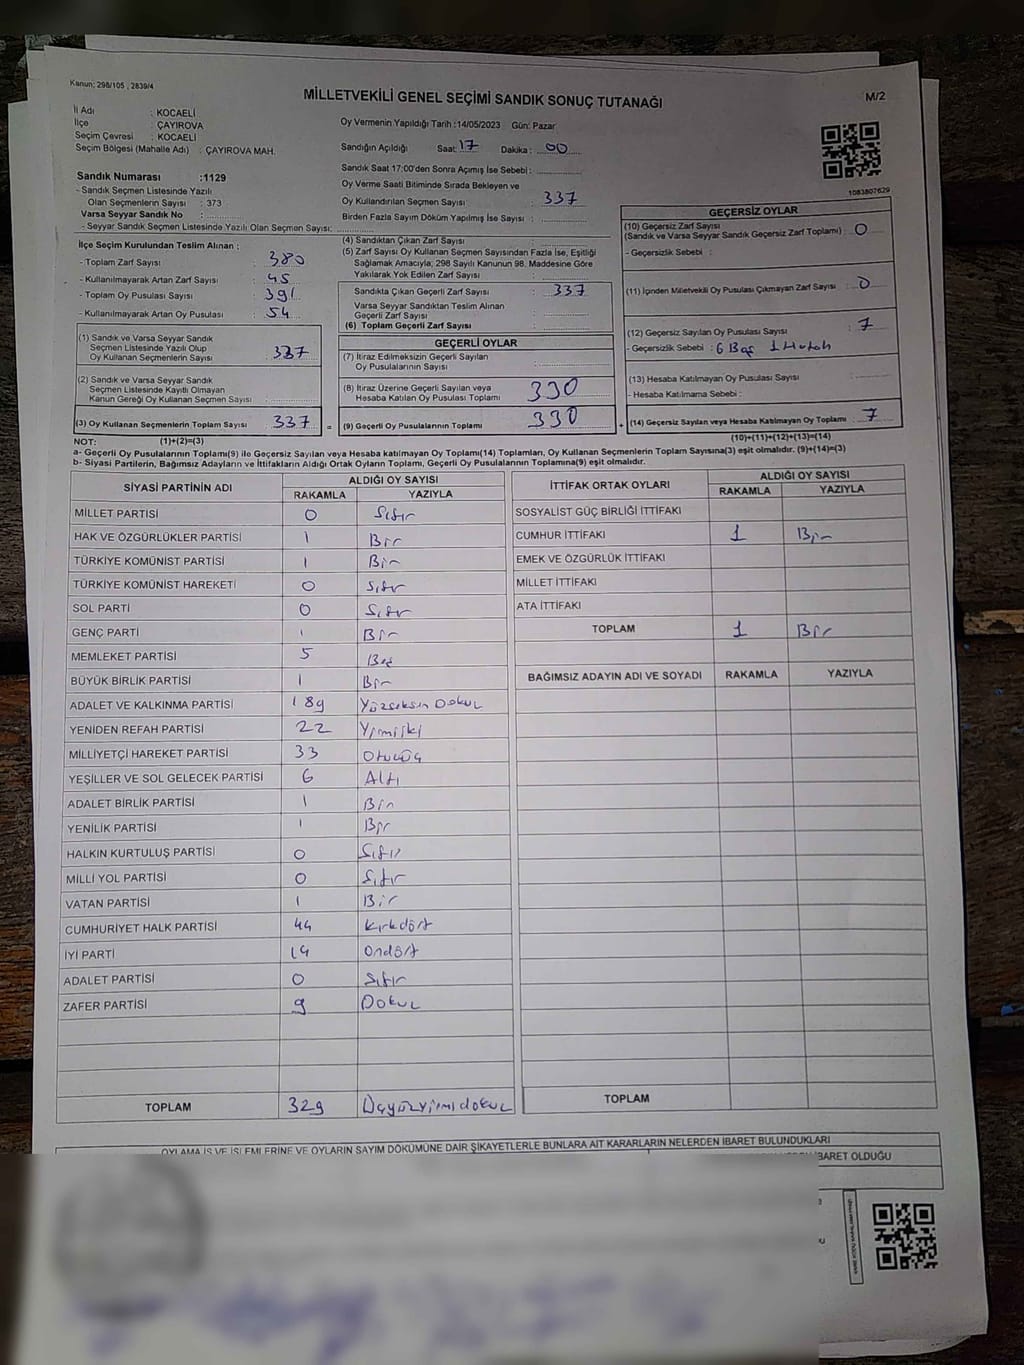 Kanun; 298/105 , 2839/4
MİLLETVEKİLİ GENEL SEÇİMİ SANDIK SONUÇ TUTANAĞI
M/2
İl Adı : KOCAELİ
İlçe : ÇAYIROVA
Seçim Çevresi : KOCAELİ
Seçim Bölgesi (Mahalle Adı) : ÇAYIROVA MAH.
Oy Vermenin Yapıldığı Tarih :14/05/2023 Gün: Pazar
Sandığın Açıldığı Saat: 17 Dakika : 00
Sandık Saat 17:00'den Sonra Açımış İse Sebebi :
Oy Verme Saati Bitiminde Sırada Bekleyen ve
Oy Kullandırılan Seçmen Sayısı : 337
Birden Fazla Sayım Döküm Yapılmış İse Sayısı :
1083807629
Sandık Numarası :1129
- Sandık Seçmen Listesinde Yazılı
Olan Seçmenlerin Sayısı : 373
Varsa Seyyar Sandık No :
- Seyyar Sandık Seçmen Listesinde Yazılı Olan Seçmen Sayısı:
İlçe Seçim Kurulundan Teslim Alınan :
- Toplam Zarf Sayısı : 380
- Kullanılmayarak Artan Zarf Sayısı : 45
- Toplam Oy Pusulası Sayısı : 391
- Kullanılmayarak Artan Oy Pusulası : 54
(1) Sandık ve Varsa Seyyar Sandık
Seçmen Listesinde Yazılı Olup
Oy Kullanan Seçmenlerin Sayısı : 337
(2) Sandık ve Varsa Seyyar Sandık
Seçmen Listesinde Kayıtlı Olmayan
Kanun Gereği Oy Kullanan Seçmen Sayısı :
(3) Oy Kullanan Seçmenlerin Toplam Sayısı : 337 =
(4) Sandıktan Çıkan Zarf Sayısı :
(5) Zarf Sayısı Oy Kullanan Seçmen Sayısından Fazla İse, Eşitliği
Sağlamak Amacıyla; 298 Sayılı Kanunun 98. Maddesine Göre
Yakılarak Yok Edilen Zarf Sayısı :
Sandıkta Çıkan Geçerli Zarf Sayısı : 337
Varsa Seyyar Sandıktan Teslim Alınan
Geçerli Zarf Sayısı :
(6) Toplam Geçerli Zarf Sayısı :
GEÇERLİ OYLAR
(7) İtiraz Edilmeksizin Geçerli Sayılan
Oy Pusulalarının Sayısı :
(8) İtiraz Üzerine Geçerli Sayılan veya
Hesaba Katılan Oy Pusulası Toplamı : 330
(9) Geçerli Oy Pusulalarının Toplamı : 330 +
GEÇERSİZ OYLAR
(10) Geçersiz Zarf Sayısı
(Sandık ve Varsa Seyyar Sandık Geçersiz Zarf Toplamı) : 0
- Geçersizlik Sebebi :
(11) İçinden Milletvekili Oy Pusulası Çıkmayan Zarf Sayısı : 0
(12) Geçersiz Sayılan Oy Pusulası Sayısı : 7
- Geçersizlik Sebebi : 6 Boş 1 Hatalı
(13) Hesaba Katılmayan Oy Pusulası Sayısı :
- Hesaba Katılmama Sebebi :
(14) Geçersiz Sayılan veya Hesaba Katılmayan Oy Toplamı : 7
NOT: (1)+(2)=(3)
(10)+(11)+(12)+(13)=(14)
a- Geçerli Oy Pusulalarının Toplamı(9) ile Geçersiz Sayılan veya Hesaba katılmayan Oy Toplamı(14) Toplamları, Oy Kullanan Seçmenlerin Toplam Sayısına(3) eşit olmalıdır. (9)+(14)=(3)
b- Siyasi Partilerin, Bağımsız Adayların ve İttifakların Aldığı Ortak Oyların Toplamı, Geçerli Oy Pusulalarının Toplamına(9) eşit olmalıdır.
SİYASİ PARTİNİN ADI
ALDIĞI OY SAYISI
RAKAMLA YAZIYLA
MİLLET PARTİSİ 0 Sıfır
HAK VE ÖZGÜRLÜKLER PARTİSİ 1 Bir
TÜRKİYE KOMÜNİST PARTİSİ 1 Bir
TÜRKİYE KOMÜNİST HAREKETİ 0 Sıfır
SOL PARTİ 0 Sıfır
GENÇ PARTİ 1 Bir
MEMLEKET PARTİSİ 5 Beş
BÜYÜK BİRLİK PARTİSİ 1 Bir
ADALET VE KALKINMA PARTİSİ 189 Yüzseksen Dokuz
YENİDEN REFAH PARTİSİ 22 Yirmiiki
MİLLİYETÇİ HAREKET PARTİSİ 33 Otuzüç
YEŞİLLER VE SOL GELECEK PARTİSİ 6 Altı
ADALET BİRLİK PARTİSİ 1 Bir
YENİLİK PARTİSİ 1 Bir
HALKIN KURTULUŞ PARTİSİ 0 Sıfır
MİLLİ YOL PARTİSİ 0 Sıfır
VATAN PARTİSİ 1 Bir
CUMHURİYET HALK PARTİSİ 44 Kırkdört
İYİ PARTİ 14 Ondört
ADALET PARTİSİ 0 Sıfır
ZAFER PARTİSİ 9 Dokuz
TOPLAM 329 Üçyüzyirmidokuz
İTTİFAK ORTAK OYLARI
ALDIĞI OY SAYISI
RAKAMLA YAZIYLA
SOSYALİST GÜÇ BİRLİĞİ İTTİFAKI
CUMHUR İTTİFAKI 1 Bir
EMEK VE ÖZGÜRLÜK İTTİFAKI
MİLLET İTTİFAKI
ATA İTTİFAKI
TOPLAM 1 Bir
BAĞIMSIZ ADAYIN ADI VE SOYADI RAKAMLA YAZIYLA
TOPLAM
OYLAMA İŞ VE İŞLEMLERİNE VE OYLARIN SAYIM DÖKÜMÜNE DAİR ŞİKAYETLERLE BUNLARA AİT KARARLARIN NELERDEN İBARET BULUNDUKLARI
İBARET OLDUĞU